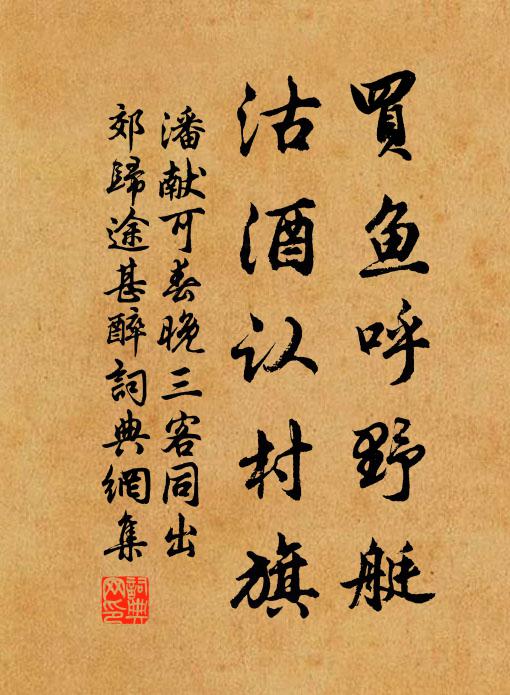 買鱼呼野艇
沽酒认村旗
潘献可春晚三客同出
郊歸途甚醉詞典網集
詞典网印